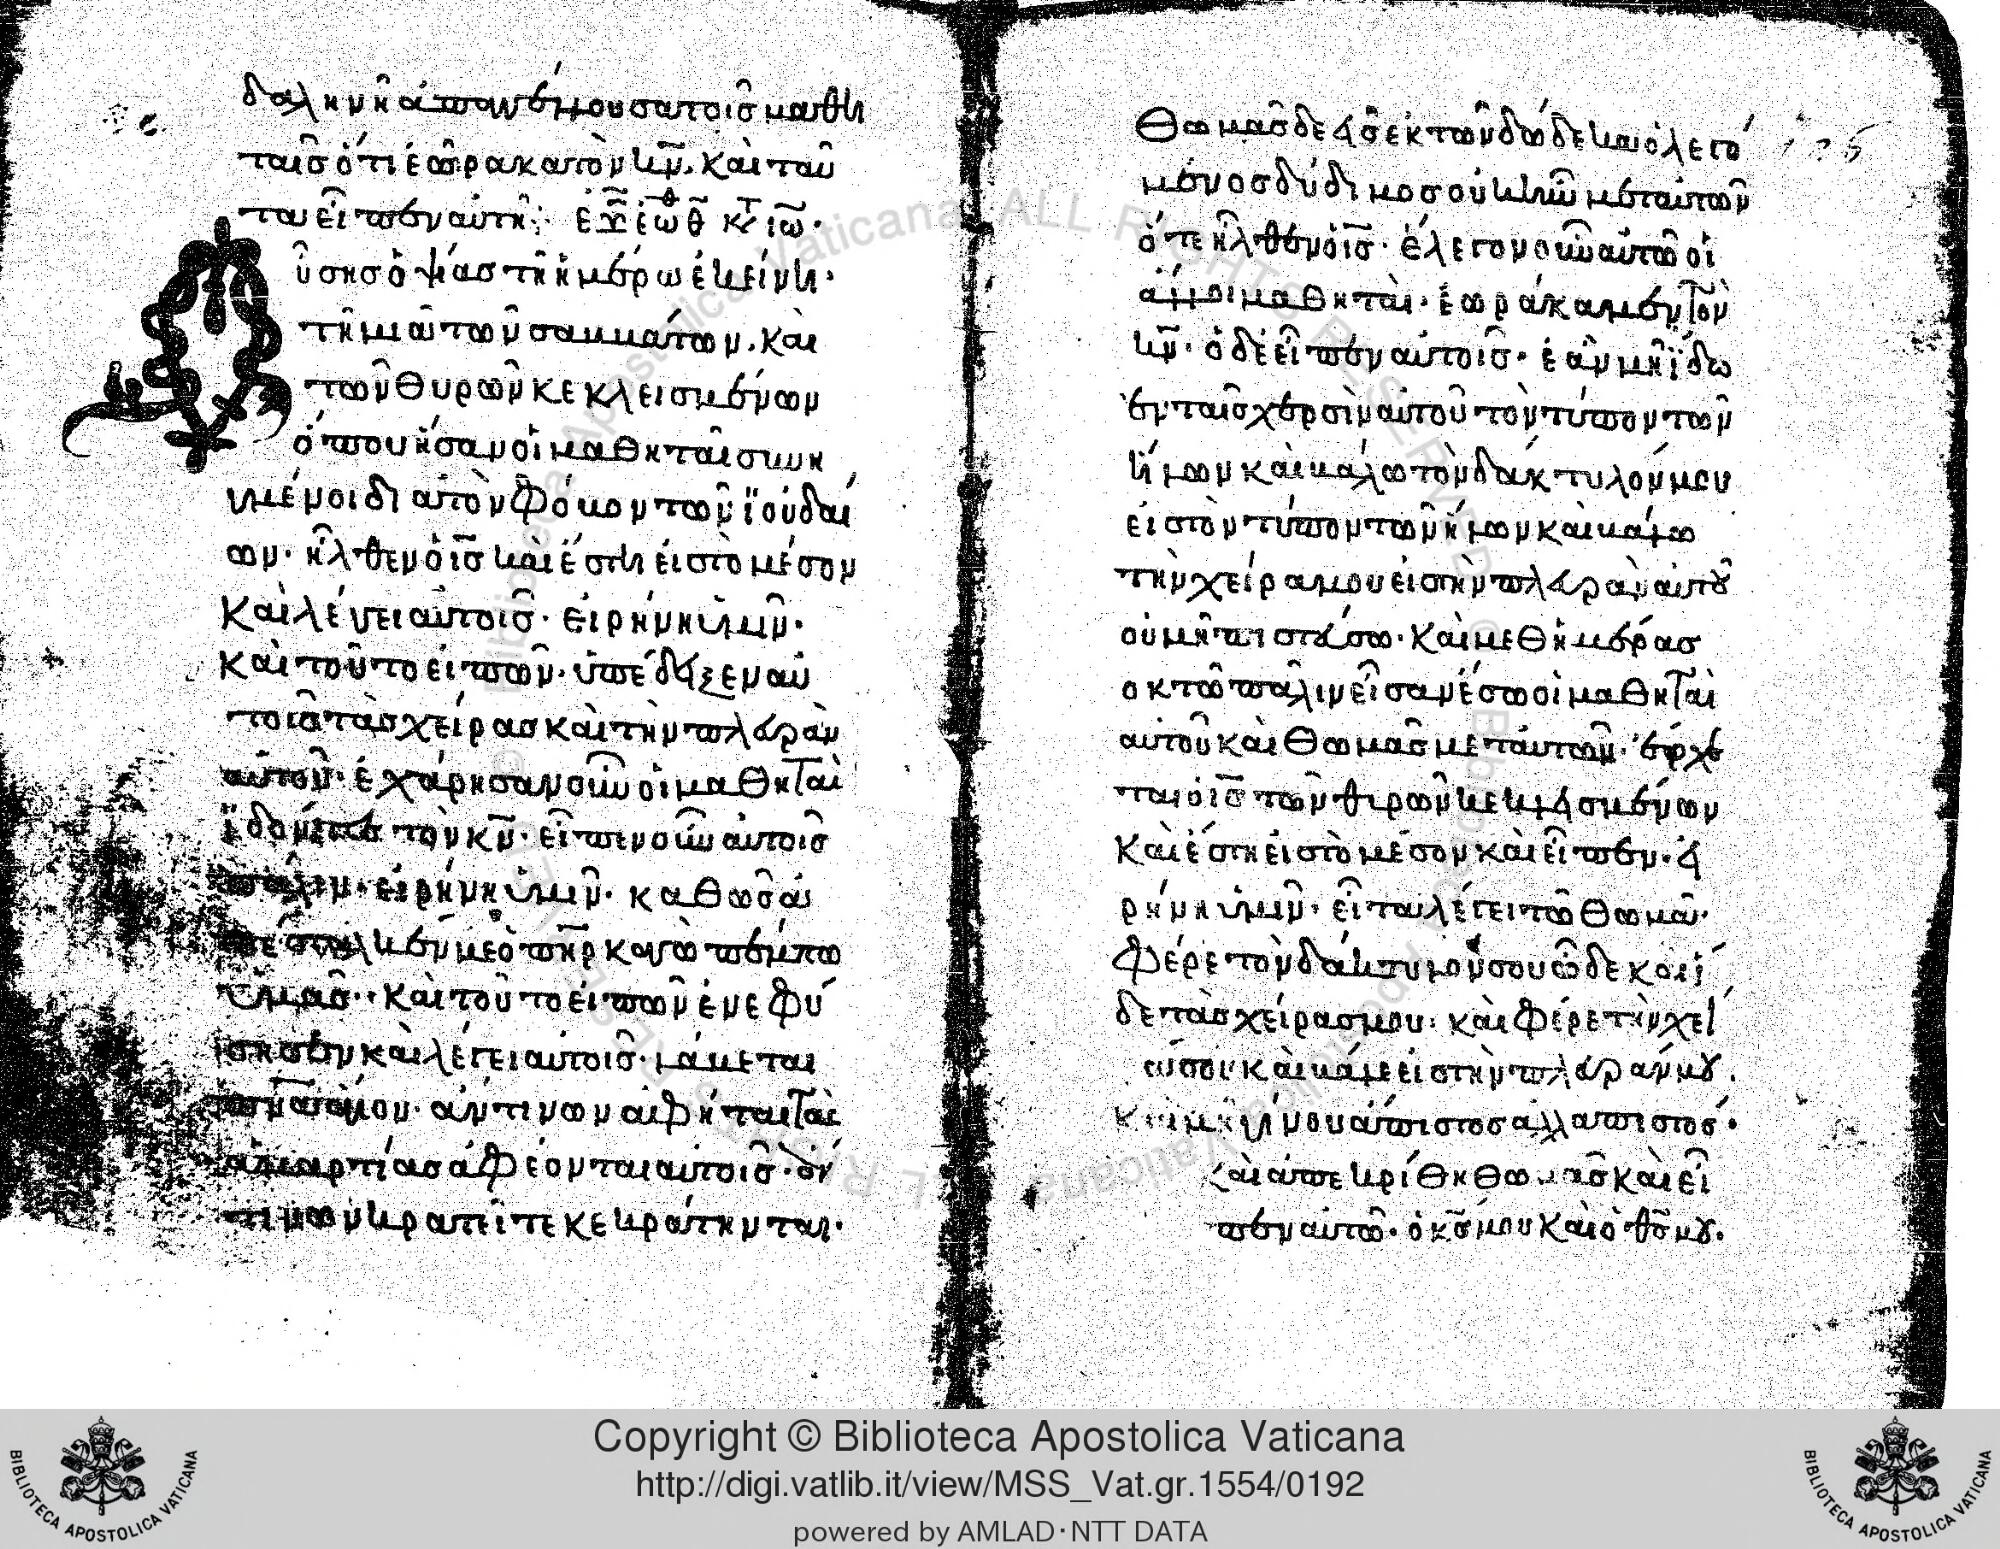 δαληνὴ ἀπαγγέλλουσα τοῖς μαθη
ταῖς ὅτι ἑώρακα τὸν κν̅. καὶ ταῦ
τα εἶπεν αὐτῆ
ὔσης ὀψίας τῆ ἡμέρω ἐκείνη·
τῆ μιῶ τῶν σαββάτων. καὶ
τῶν θυρῶν κεκλεισμένων
ὅπου ἦσαν οἱ μαθηταὶ συνη
γμένοι διὰ τὸν φόβον τῶν ἰουδαί
ων. ἦλθεν ὁ ι̅ς̅ καὶ ἔστη εἰς τὸ μέσον
καὶ λέγει αὐτοῖς. εἰρήνη ὑμῖν.
καὶ τοῦτο εἰπῶν. ὑπέδειξεν αὐ
τοῖς τὰς χεῖρας καὶ τὴν πλευρὰν
αὐτοῦ. ἐχάρησαν οὖν οἱ μαθηταὶ
ἰδόντες τὸν κν̅. εἶπεν οὖν αὐτοῖς
πάλιν. εἰρήνη ὑμῖν. καθὼς ἀ
πέσταλκέν με ὁ πη̅ρ καγὼ πέμπω
ὑμᾶς. καὶ τοῦτο εἰπῶν ἐνεφύ
σησεν καὶ λέγει αὐτοῖς. λάβεται
πν̅α ἅγιον. ἄν τινων ἀφῆται ταὶ
ἁμαρτίας ἀφέονται αὐτοῖς. ὄν
τινων κρατεῖτε κεκράτηνται.
Θωμᾶς δὲ εἷς ἐκ τῶν δώδεκα ὁ λεγό
μενος δύδιμος οὐκ ἦν μετ αὐτῶν
ὅτε ἦλθεν ὁ ι̅ς̅. ἔλεγον οὖν αὐτῶ οἱ
ἄλλοι μαθηταὶ. ἑωράκαμεν τὸν
κν̅. ὁ δὲ εἶπεν αὐτοῖς. ἐὰν μὴ ἴδω
ἐν ταῖς χερσὶν αὐτοῦ τὸν τύπον τῶν
ἥλων καὶ βάλω τὸν δάκτυλόν μου
εἰς τὸν τύπον τῶν ἥλων καὶ βάλω
τὴν χεῖρα μου εἰς τὴν πλευρὰν αὐτοῦ
οὐ μὴ πιστεύσω. καὶ μεθ ἡμέρας
οκτὼ πάλιν εἶσαν έσω οἱ μαθηταὶ
αὐτοῦ καὶ Θωμᾶς μετ αὐτῶν. έρχε
ται ὁ ι̅ς̅ τῶν θιρῶν κεκλεισμένων
καὶ έστη εἰς τὸ μέσον καὶ εἶπεν. εἰ
ρήνη ὑμῖν. εἶτα λέγει τῶ Θωμᾶ.
φέρε τὸν δάκτυλόν σου ὧδε καὶ ί
δε τὰς χεῖρας μου. καὶ φέρε τὴν χεῖ
σου καὶ βάλε εἰς τὴν πλευράν μου.
καὶ μὴ γίνου άπιστος αλλα πιστός.
καὶ ἀπεκρίθη Θωμᾶς καὶ εἶ
πεν αὐτῶ. ὁ κ̅ς̅ μου καὶ ὁ θ̅ς̅ μου.
Copyright © Biblioteca Apostolica Vaticana
http://digi.vatlib.it/view/MSS_Vat.gr.1554/0192
powered by AMLAD·NTT DATA
BIBLIOTECA APOSTOLICA VATICANA
BIBLIOTECA APOSTOLICA VATICANA